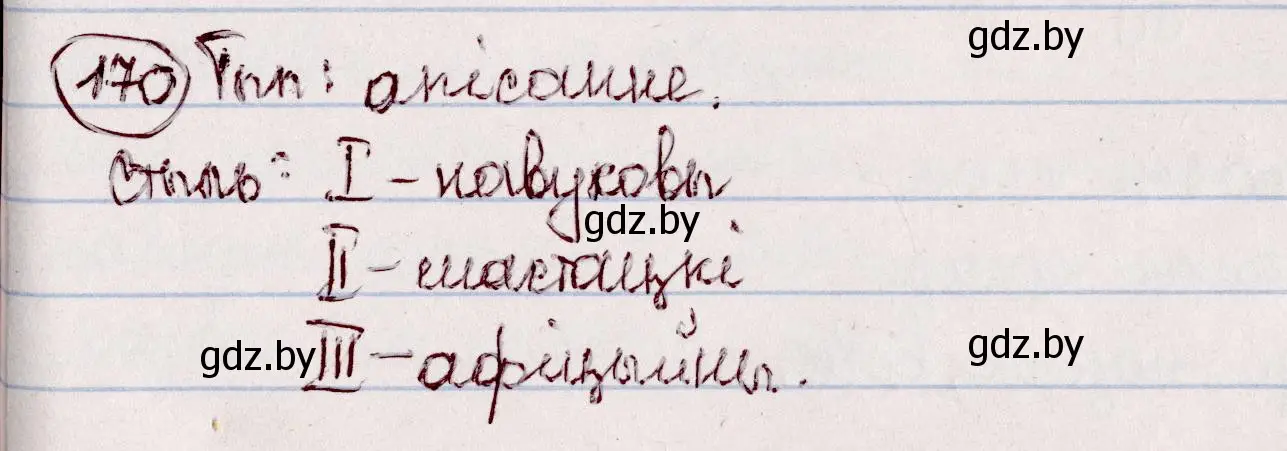 gdz.by
170 Тып: апісанне.
стыль: I - навуковы
gdz.by
II - мастацкі
gdz.by III - афіцыйны. gdz.by